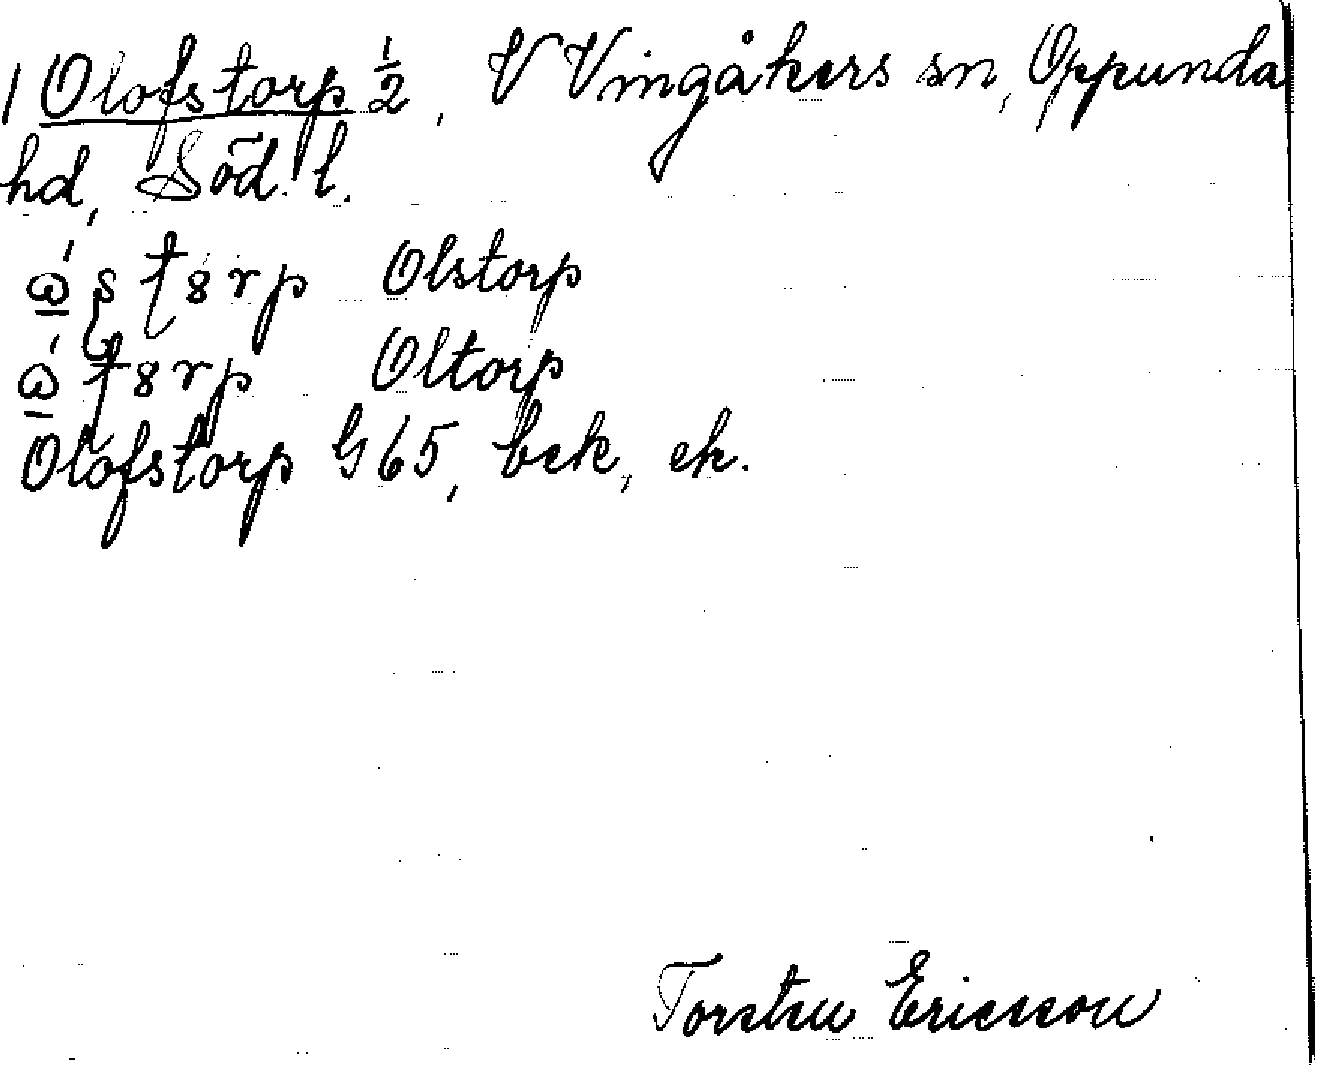 1 Olofstorp 1/2, V Vingåkers sn, Oppunda
hd, Söd. l.
Olstorp
Oltorp
Olofstorp G65, bek, ek.
Torsten Ericsson